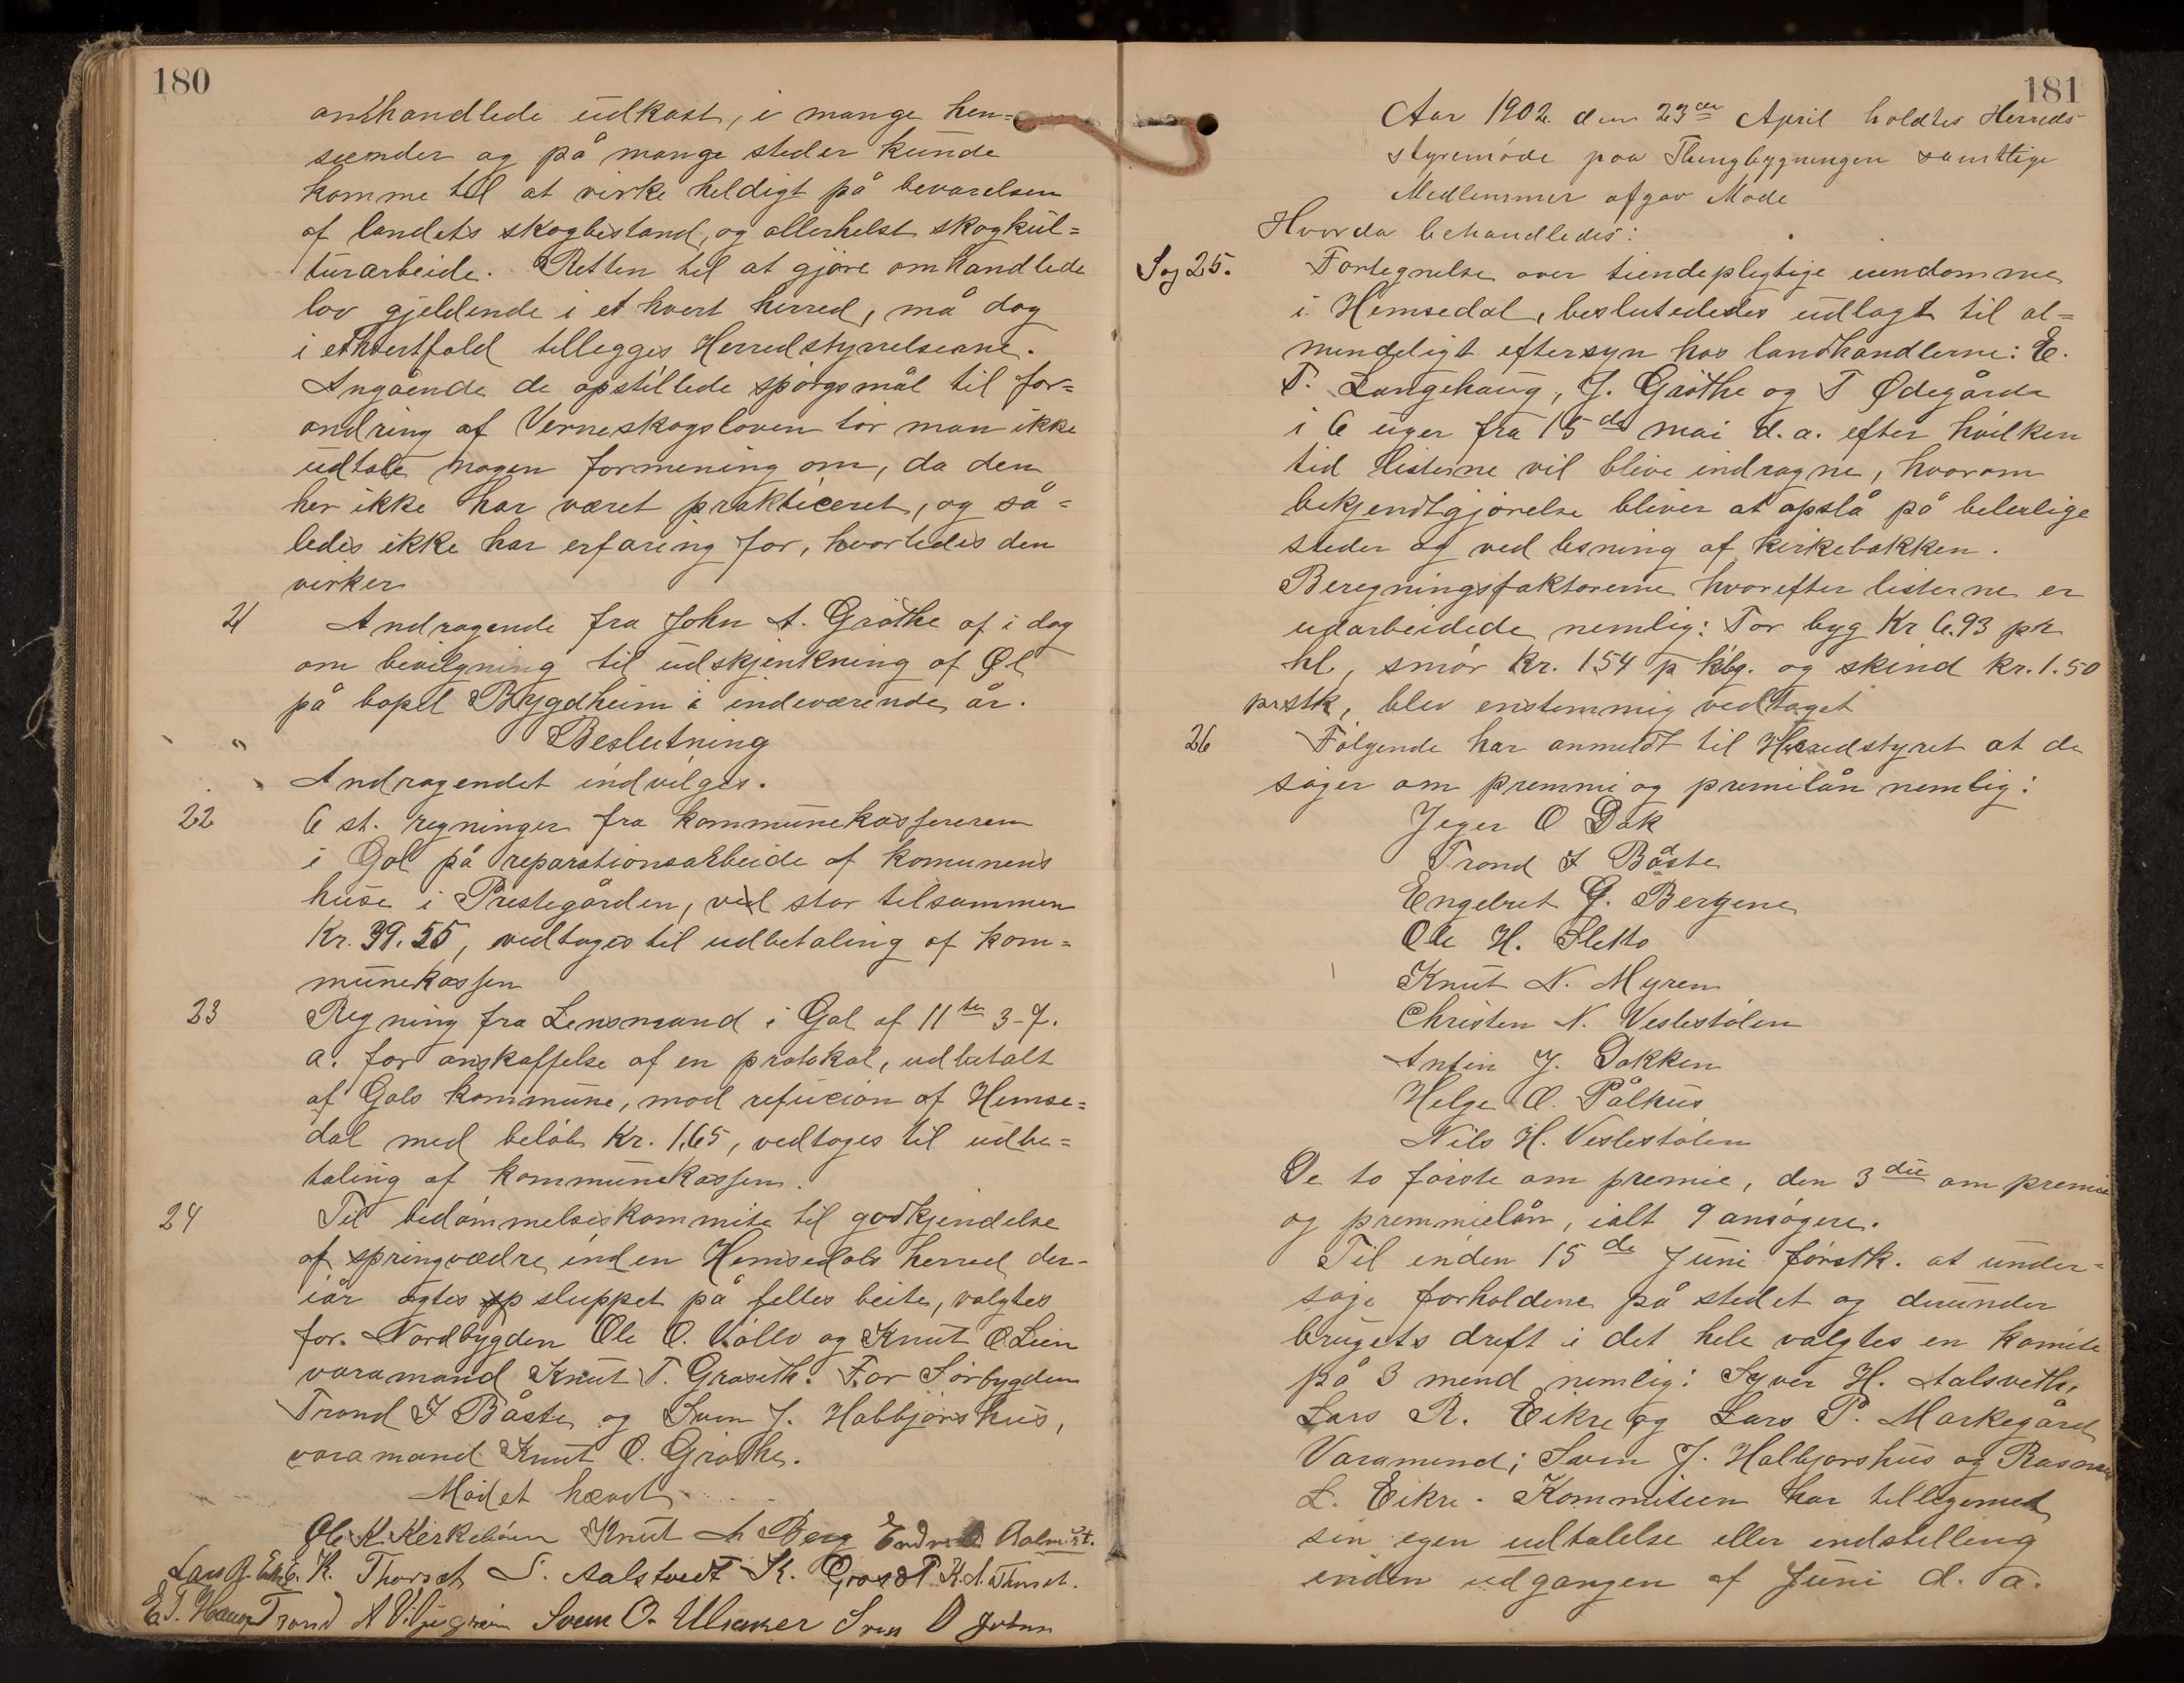 180
omhandlede udkast, i mange hen=
seender og på mange steder kunde
komme til at virke heldigt på bevarelsen
af landets skogbestand, og allerhelst skogkul=
turarbeide. Retten til at gjøre omhandlede
lov gjeldende i et hvert herred, må dog
i ethvertfald tillegges Herredstyrrelserne.
Angående de opstillede spørgsmål til for=
andring af Verneskogsloven tør man ikke
udtale nogen formening om, da den
her ikke har været prakticeret, og så=
ledes ikke har erfaring for, hvorledes den
virker
21 Andragende fra John A. Grøthe af i dag
om bevilgning til udskjenkning af Øl
på bopel Bygdheim i indeværende år.
Beslutning
Andragendet indvilges.
22 6 st. regninger fra kommunekassereren
i Gol på reparationsarbeide af komunens
huse i Prestegården, ved stor tilsammen
Kr. 39.55, vedtages til udbetaling af kom=
munekassen
23 Regning fra Lensmand i Gol af 11te 3-f.
a. for anskaffelse af en protokol, udbetalt
af Gols kommune, mod refucion af Hemse=
dal med beløb Kr. 1,65, vedtoges til udbe=
taling af kommunekassen.
24 Til bedømmelseskommite til godkjendelse
af springvædre inden Hemsedals herred der-
iår agtes sluppet på felles beite, valgtes
for Nordbygden Ole O. Kollo og Knut O Lien
varamand Knut T. Grøseth. For Sørbygden
Trond I Båste og Sven J. Halbjørshus,
varamand Knut O. Grøthe.
Mødet hævet
Ole K Kirkebøen Knut A Berg Endre Aalm
Lars R. Eikre E. K. Thorset S. Aalstvedt K. Grøset K. A. Thorset.
E T. Haug Trond A Viljugrein Sven O. Ulsaker Sven O
181
Aar 1902 den 23de April holdtes Herreds
styremøde paa Thingbygningen samttige
Medlemmer afgav Møde
Hvorda behandledes:
Sag 25. Fortegnelse over tiendepligtige eiendomme
i Hemsedal, beslutededes udlagt til al=
mindeligt eftersyn hos landhandlerne: E.
T. Langehaug, J. Grøthe og T Ødegårde
i 6 uger fra 15de mai d. a. efter hvilken
tid listerne vil blive indragne, hvorom
bekjendtgjørelse bliver at opslå på beleilige
steder og ved lesning af kirkebakken.
Beregningsfaktorerne hvorefter listerne er
udarbeidede nemlig: For byg Kr 6.93 pr
hl, smør kr. 1.54 p kg. og skind kr. 1.50
pr stk, blev enstemmig vedtaget
26 Følgende har anmeldt til Herredstyret at de
søger om premmi og premilån nemlig:
Jeger O Dok
Trond I Båste
Engebret G. Bergene
Ole H. Sletto
Knut N. Myren
Christen N. Veslestølen
Anfin J. Dokken
Helge O. Pålhus
Nils H. Veslestølen
De to første om premie, den 3die om premie
og premmielån, ialt 9 ansøgere.
Til inden 15de Juni førstk. at under=
søge forholdene på stedet og derunder
brugets drift i det hele valgtes en komite
på 3 mend nemlig: Syver H. Aalsveth,
Lars R. Eikre og Lars P. Markegård
Varamend; Sven J. Halbjørshus og Rasmus
L. Eikre. Kommiteen har tillegemed
sin egen udtalelse eller indstilling
inden udgangen af Juni d. a.